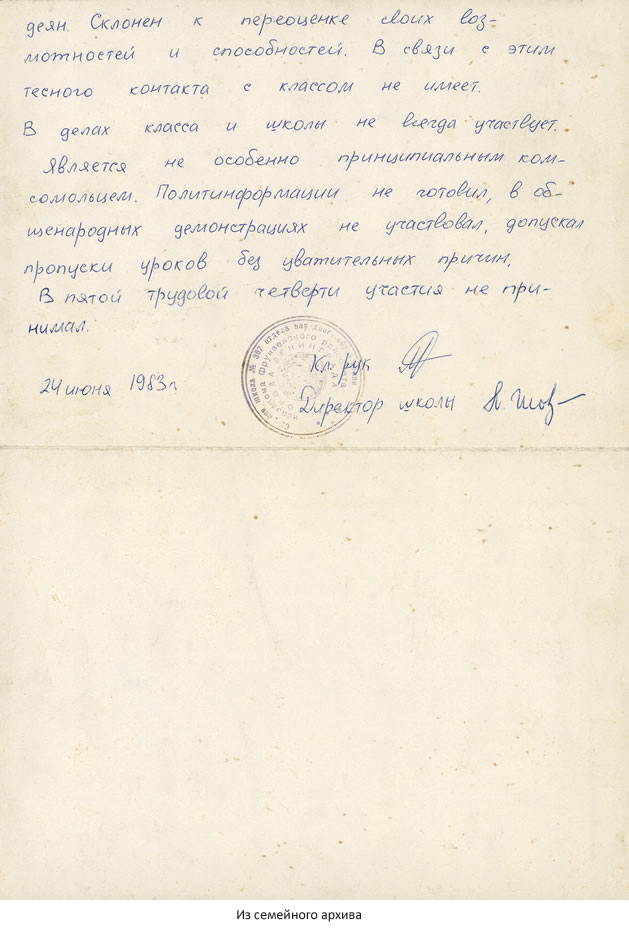 деян. Склонен к переоценке своих воз-
можностей и способностей. В связи с этим
тесного контакта с классом не имеет.
В делах класса и школы не всегда участвует.
Является не особенно принципиальным ком-
сомольцем. Политинформации не готовил, в об-
щенародных демонстрациях не участвовал, допускал
пропуски уроков без уважительных причин.
В пятой трудовой четверти участия не при-
нимал.
24 июня 1983 г.
Кл. рук
Директор школы
школа № 307 отдела народного
исполкома Фрунзенского
ЛЕНИНГРАДА
Из семейного архива